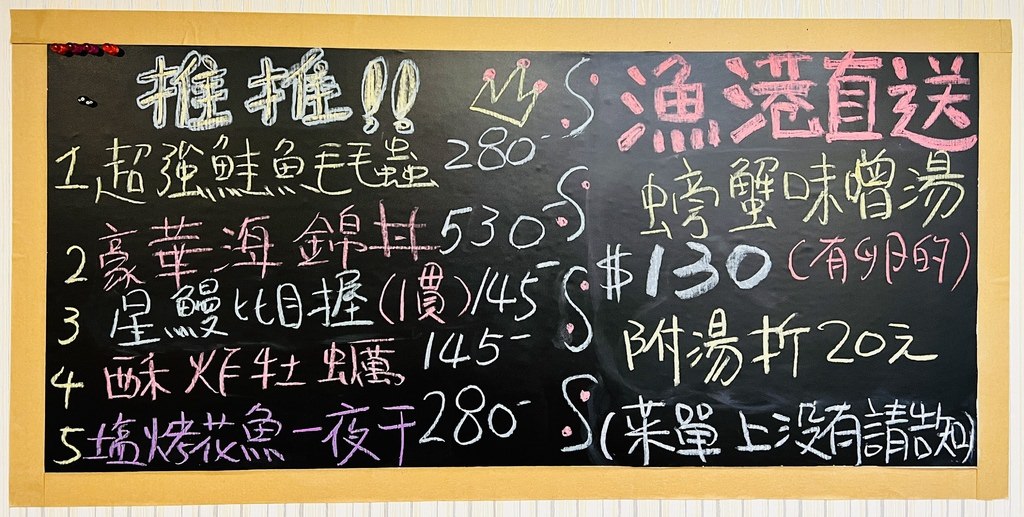 推推!!
1 超強鮭魚毛毛蟲 280-
2 豪華海錦丼 530-
3 星鰻比目握(1貫) 145-
4 酥炸牡蠣 145-
5 塩烤花魚一夜干 280-
漁港直送
螃蟹味噌湯
$130 (有卵的)
附湯折20元
(菜單上沒有請告知)